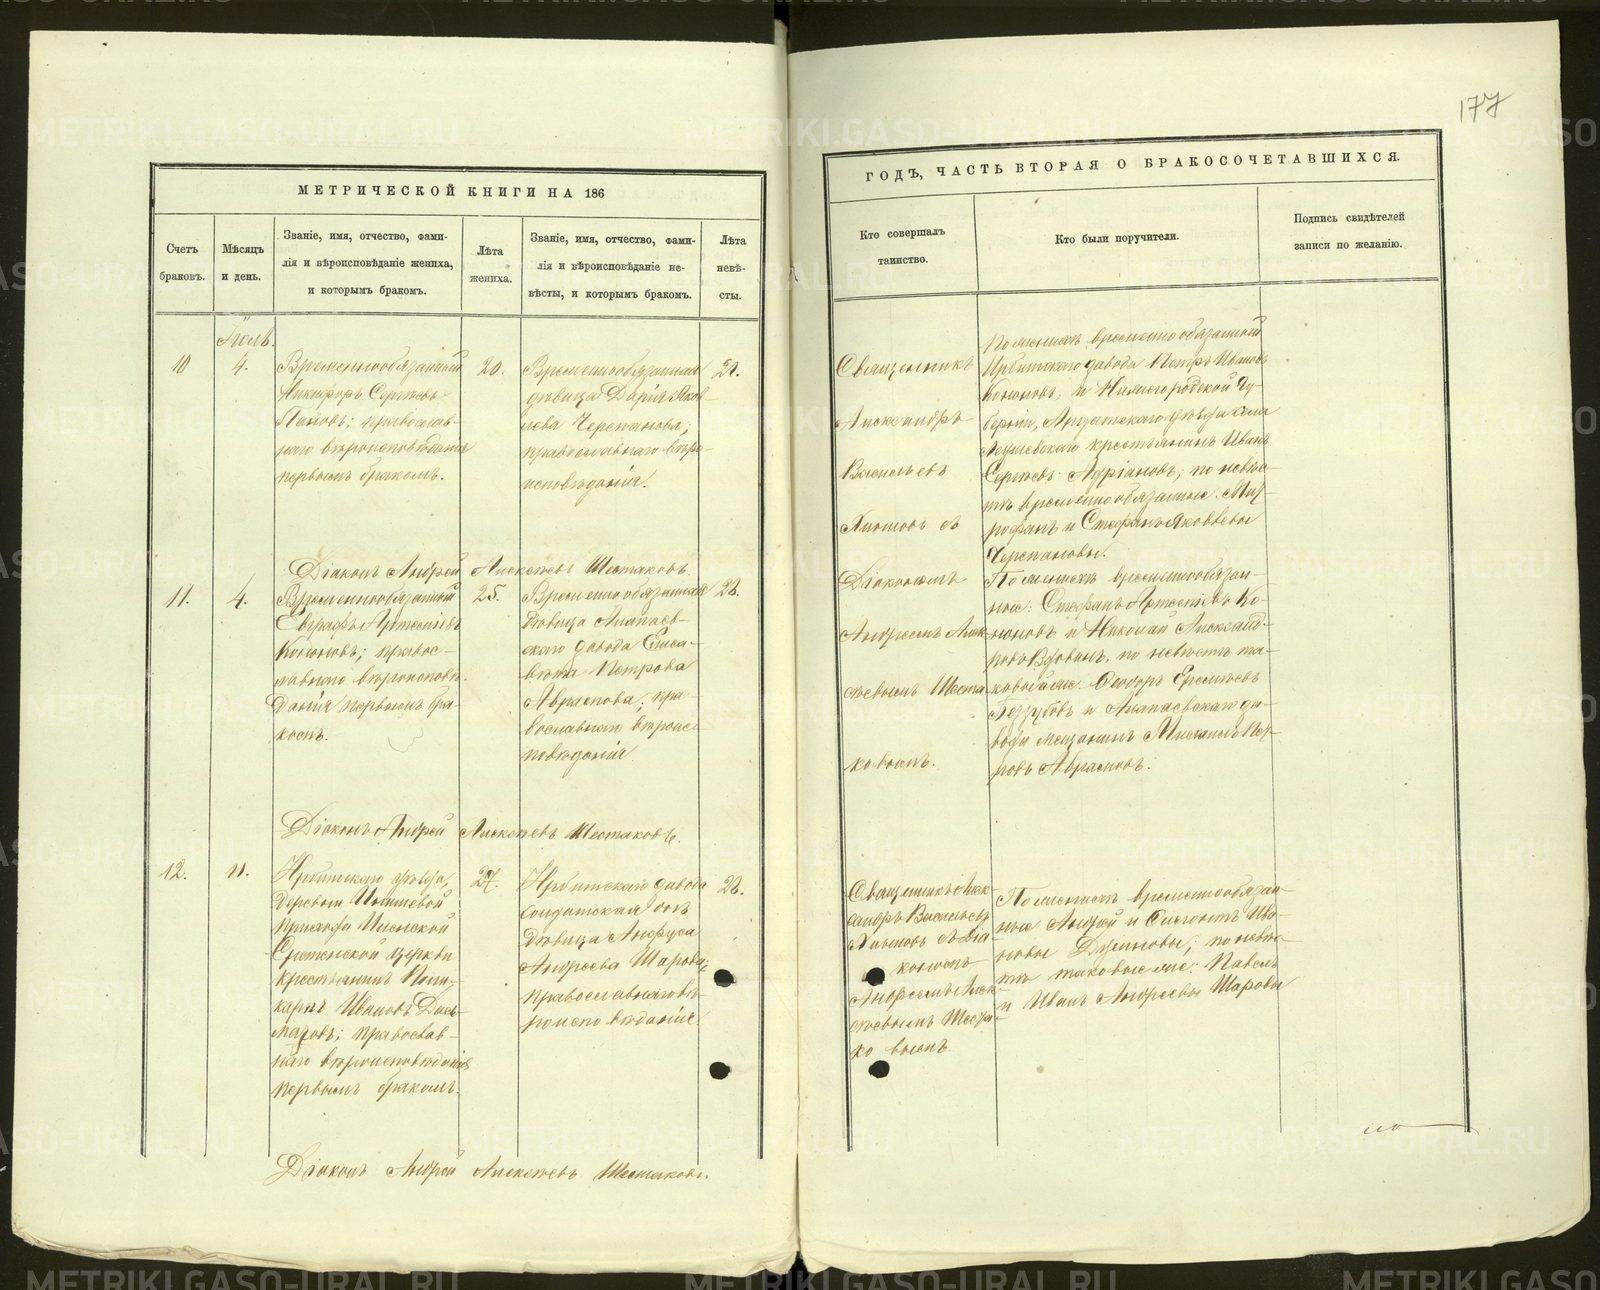 177
МЕТРИЧЕСКОЙ КНИГИ НА 186
ГОДЪ, ЧАСТЬ ВТОРАЯ О БРАКОСОЧЕТАВШИХСЯ.
Счетъ
браковъ.
Мѣсяцъ
и день.
Званіе, имя, отчество, фами-
лія и вѣроисповѣданіе жениха,
и которымъ бракомъ.
Лѣта
жениха.
Званіе, имя, отчество, фами-
лія и вѣроисповѣданіе не-
вѣсты, и которымъ бракомъ.
Лѣта
невѣ-
сты.
Кто совершалъ
таинство.
Кто были поручители.
Подпись свидѣтелей
записи по желанію.
Іюль.
10
4.
Временнообязанный
Никифоръ Сергѣевъ
Пановъ; православ-
наго вѣроисповѣданія
первымъ бракомъ.
20.
Временнообязанная
дѣвица Дарія Яков-
лева Черепанова;
православнаго вѣро-
исповѣданія.
21.
Священникъ
Александръ
Васильевъ
съ
Діакономъ
Андреемъ Алек-
сѣевымъ Шеста-
ковымъ.
По женихѣ временнообязанный
Ирбитскаго завода Петръ Ивановъ
Кононовъ, и Нижегородской Гу-
берніи, Ардатскаго уѣзда села
крестьянинъ Иванъ
Сергѣевъ Адріановъ; по невѣс-
тѣ временнообязанные: Мит-
рофанъ и Стефанъ Яковлевы
Черепановы.
Діаконъ Андрей Алексѣевъ Шестаковъ.
11.
4.
Временнообязанный
Евграфъ Артеміевъ
Кононовъ; правос-
лавнаго вѣроисповѣ-
данія первымъ бра-
комъ.
25.
Временнообязанная
дѣвица Алапаев-
скаго завода Елиса-
вета Петрова
Абрамова; пра-
вославнаго вѣроис-
повѣданія.
22.
По женихѣ временнообязан-
ные: Стефанъ Артеміевъ Ко-
ноновъ и Николай Александ-
ровъ Вдовинъ, по невѣстѣ та-
ковые же: Ѳеодоръ Еремѣевъ
Беззубовъ и Алапаевскаго за-
вода мещанинъ Михаилъ Пет-
ровъ Абрамовъ.
Діаконъ Андрей Алексѣевъ Шестаковъ.
12.
11.
Ирбитскаго уѣзда,
деревни
прихода
Срѣтенской церкви
крестьянинъ Поли-
карпъ Ивановъ
православ-
наго вѣроисповѣданія
первымъ бракомъ.
27.
Ирбитскаго завода
солдатская дочь
дѣвица Анфуса
Андреева Шарова;
православнаго вѣ-
роисповѣданія.
22.
Священникъ Алек-
сандръ Васильевъ
съ Діа-
кономъ
Андреемъ Алек-
сѣевымъ Шеста-
ковымъ.
По женихѣ временнообязан-
ные Андрей и Ива-
новы по невѣс-
тѣ таковые же: Павелъ
и Иванъ Андреевы Шаровы
Діаконъ Андрей Алексѣевъ Шестаковъ.
METRIKI.GASO-URAL.RU